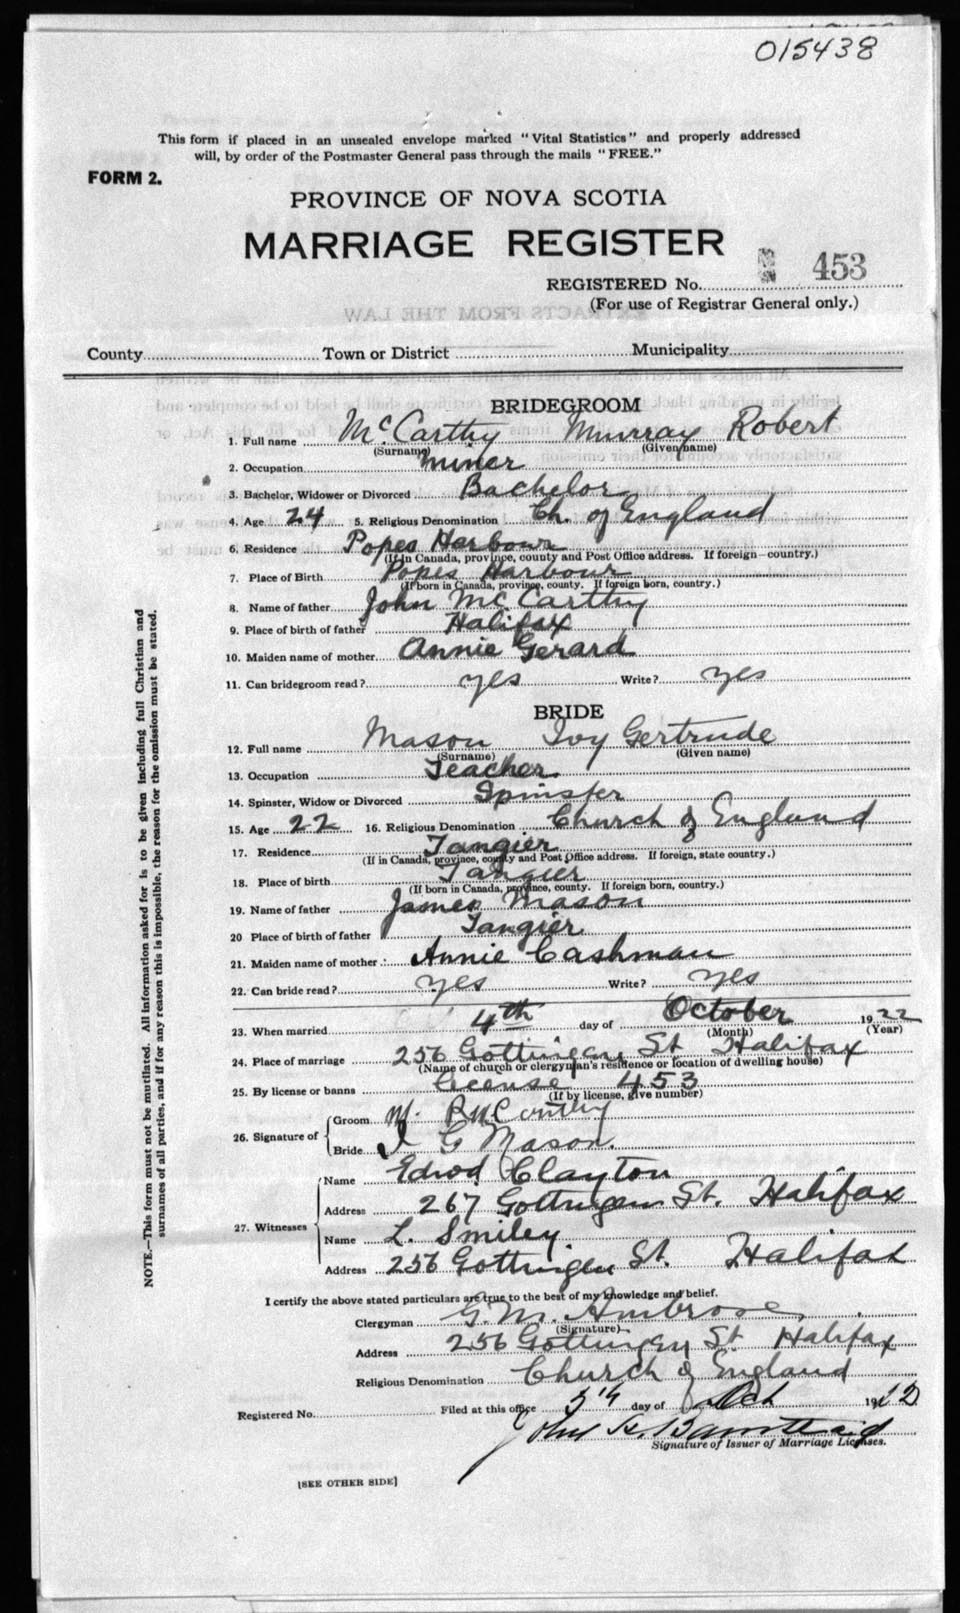 015438
This form if placed in an unsealed envelope marked "Vital Statistics" and properly addressed
will, by order of the Postmaster General pass through the mails "FREE."
FORM 2.
PROVINCE OF NOVA SCOTIA
MARRIAGE REGISTER
REGISTERED No. 453
(For use of Registrar General only.)
County Town or District Municipality
BRIDEGROOM
1. Full name McCarthy Murray Robert
(Surname) (Given name)
2. Occupation miner
3. Bachelor, Widower or Divorced Bachelor
4. Age 24 5. Religious Denomination Ch. of England
6. Residence Popes Harbour
(If in Canada, province, county and Post Office address. If foreign—country.)
7. Place of Birth Popes Harbour
(If born in Canada, province, county. If foreign born, country.)
8. Name of father John McCarthy
9. Place of birth of father Halifax
10. Maiden name of mother Annie Gerard
11. Can bridegroom read? yes Write? yes
BRIDE
12. Full name Mason Ivy Gertrude
(Surname) (Given name)
13. Occupation Teacher
14. Spinster, Widow or Divorced Spinster
15. Age 22 16. Religious Denomination Church of England
17. Residence Tangier
(If in Canada, province, county and Post Office address. If foreign, state country.)
18. Place of birth Tangier
(If born in Canada, province, county. If foreign born, country.)
19. Name of father James Mason
20 Place of birth of father Tangier
21. Maiden name of mother Annie Cashman
22. Can bride read? yes Write? yes
23. When married 4th day of October 1922
(Month) (Year)
24. Place of marriage 256 Gottingen St Halifax
(Name of church or clergyman's residence or location of dwelling house)
25. By license or banns license 453
(If by license, give number)
26. Signature of Groom M. R McCarthy
Bride I G Mason.
27. Witnesses Name Edwd Clayton
Address 267 Gottingen St. Halifax
Name L. Smiley.
Address 256 Gottingen St. Halifax
I certify the above stated particulars are true to the best of my knowledge and belief.
Clergyman G. M. Ambrose
(Signature)
Address 256 Gottingen St Halifax
Religious Denomination Church of England
Registered No. Filed at this office 5th day of Oct 1922
John H.
Signature of Issuer of Marriage Licenses.
[SEE OTHER SIDE]
NOTE.—This form must not be mutilated. All information asked for is to be given including full Christian and
surnames of all parties, and if for any reason this is impossible, the reason for the omission must be stated.